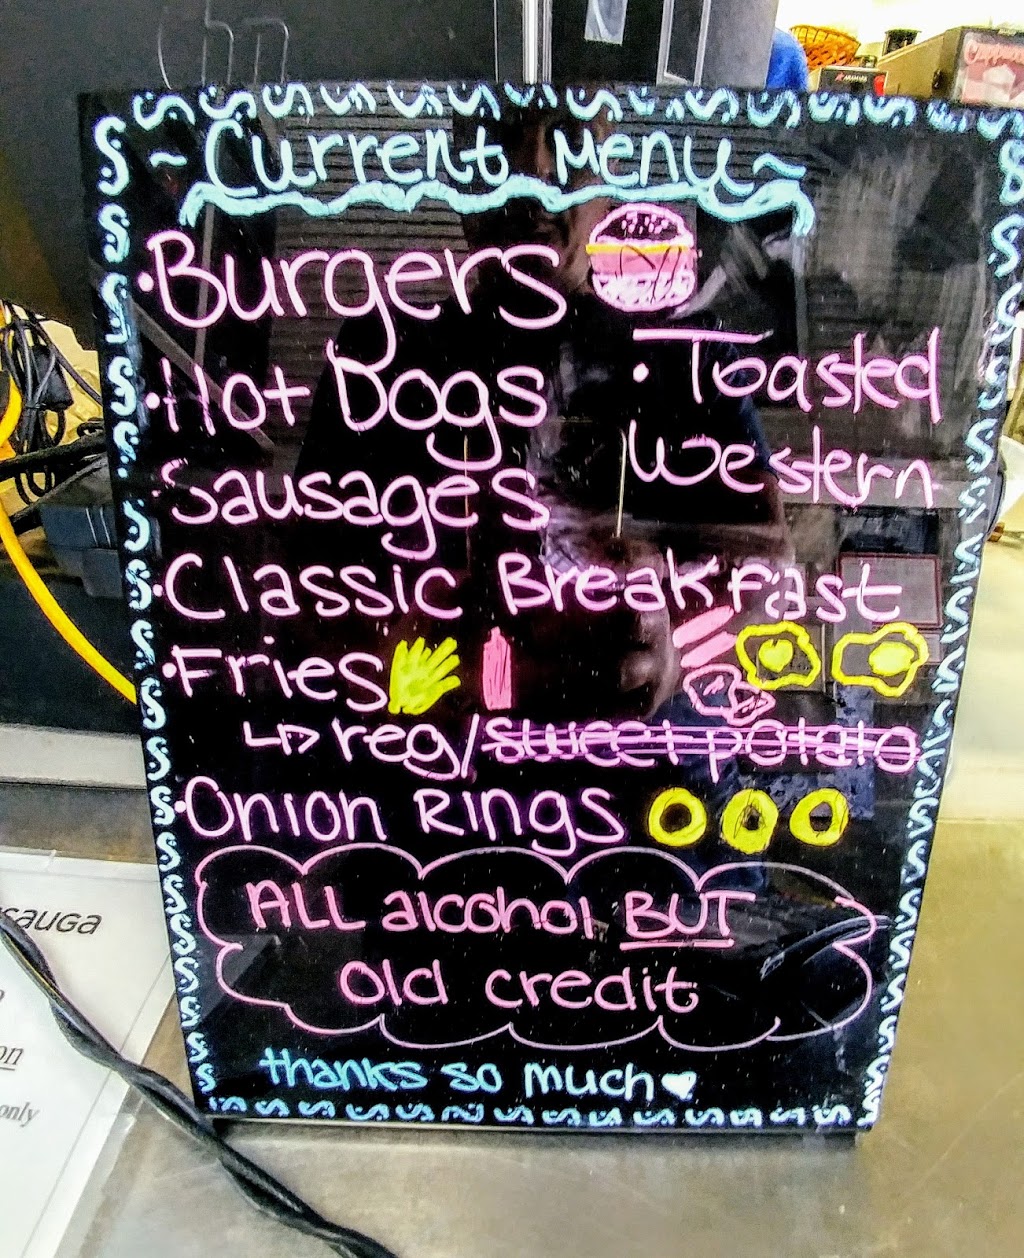 ~ Current Menu ~
• Burgers
• Hot Dogs
• Toasted
Western
• Sausages
• Classic Breakfast
• Fries
↳ reg/sweet potato
• Onion Rings
ALL alcohol BUT
Old credit
thanks so much ♥
SAUGA
on
only